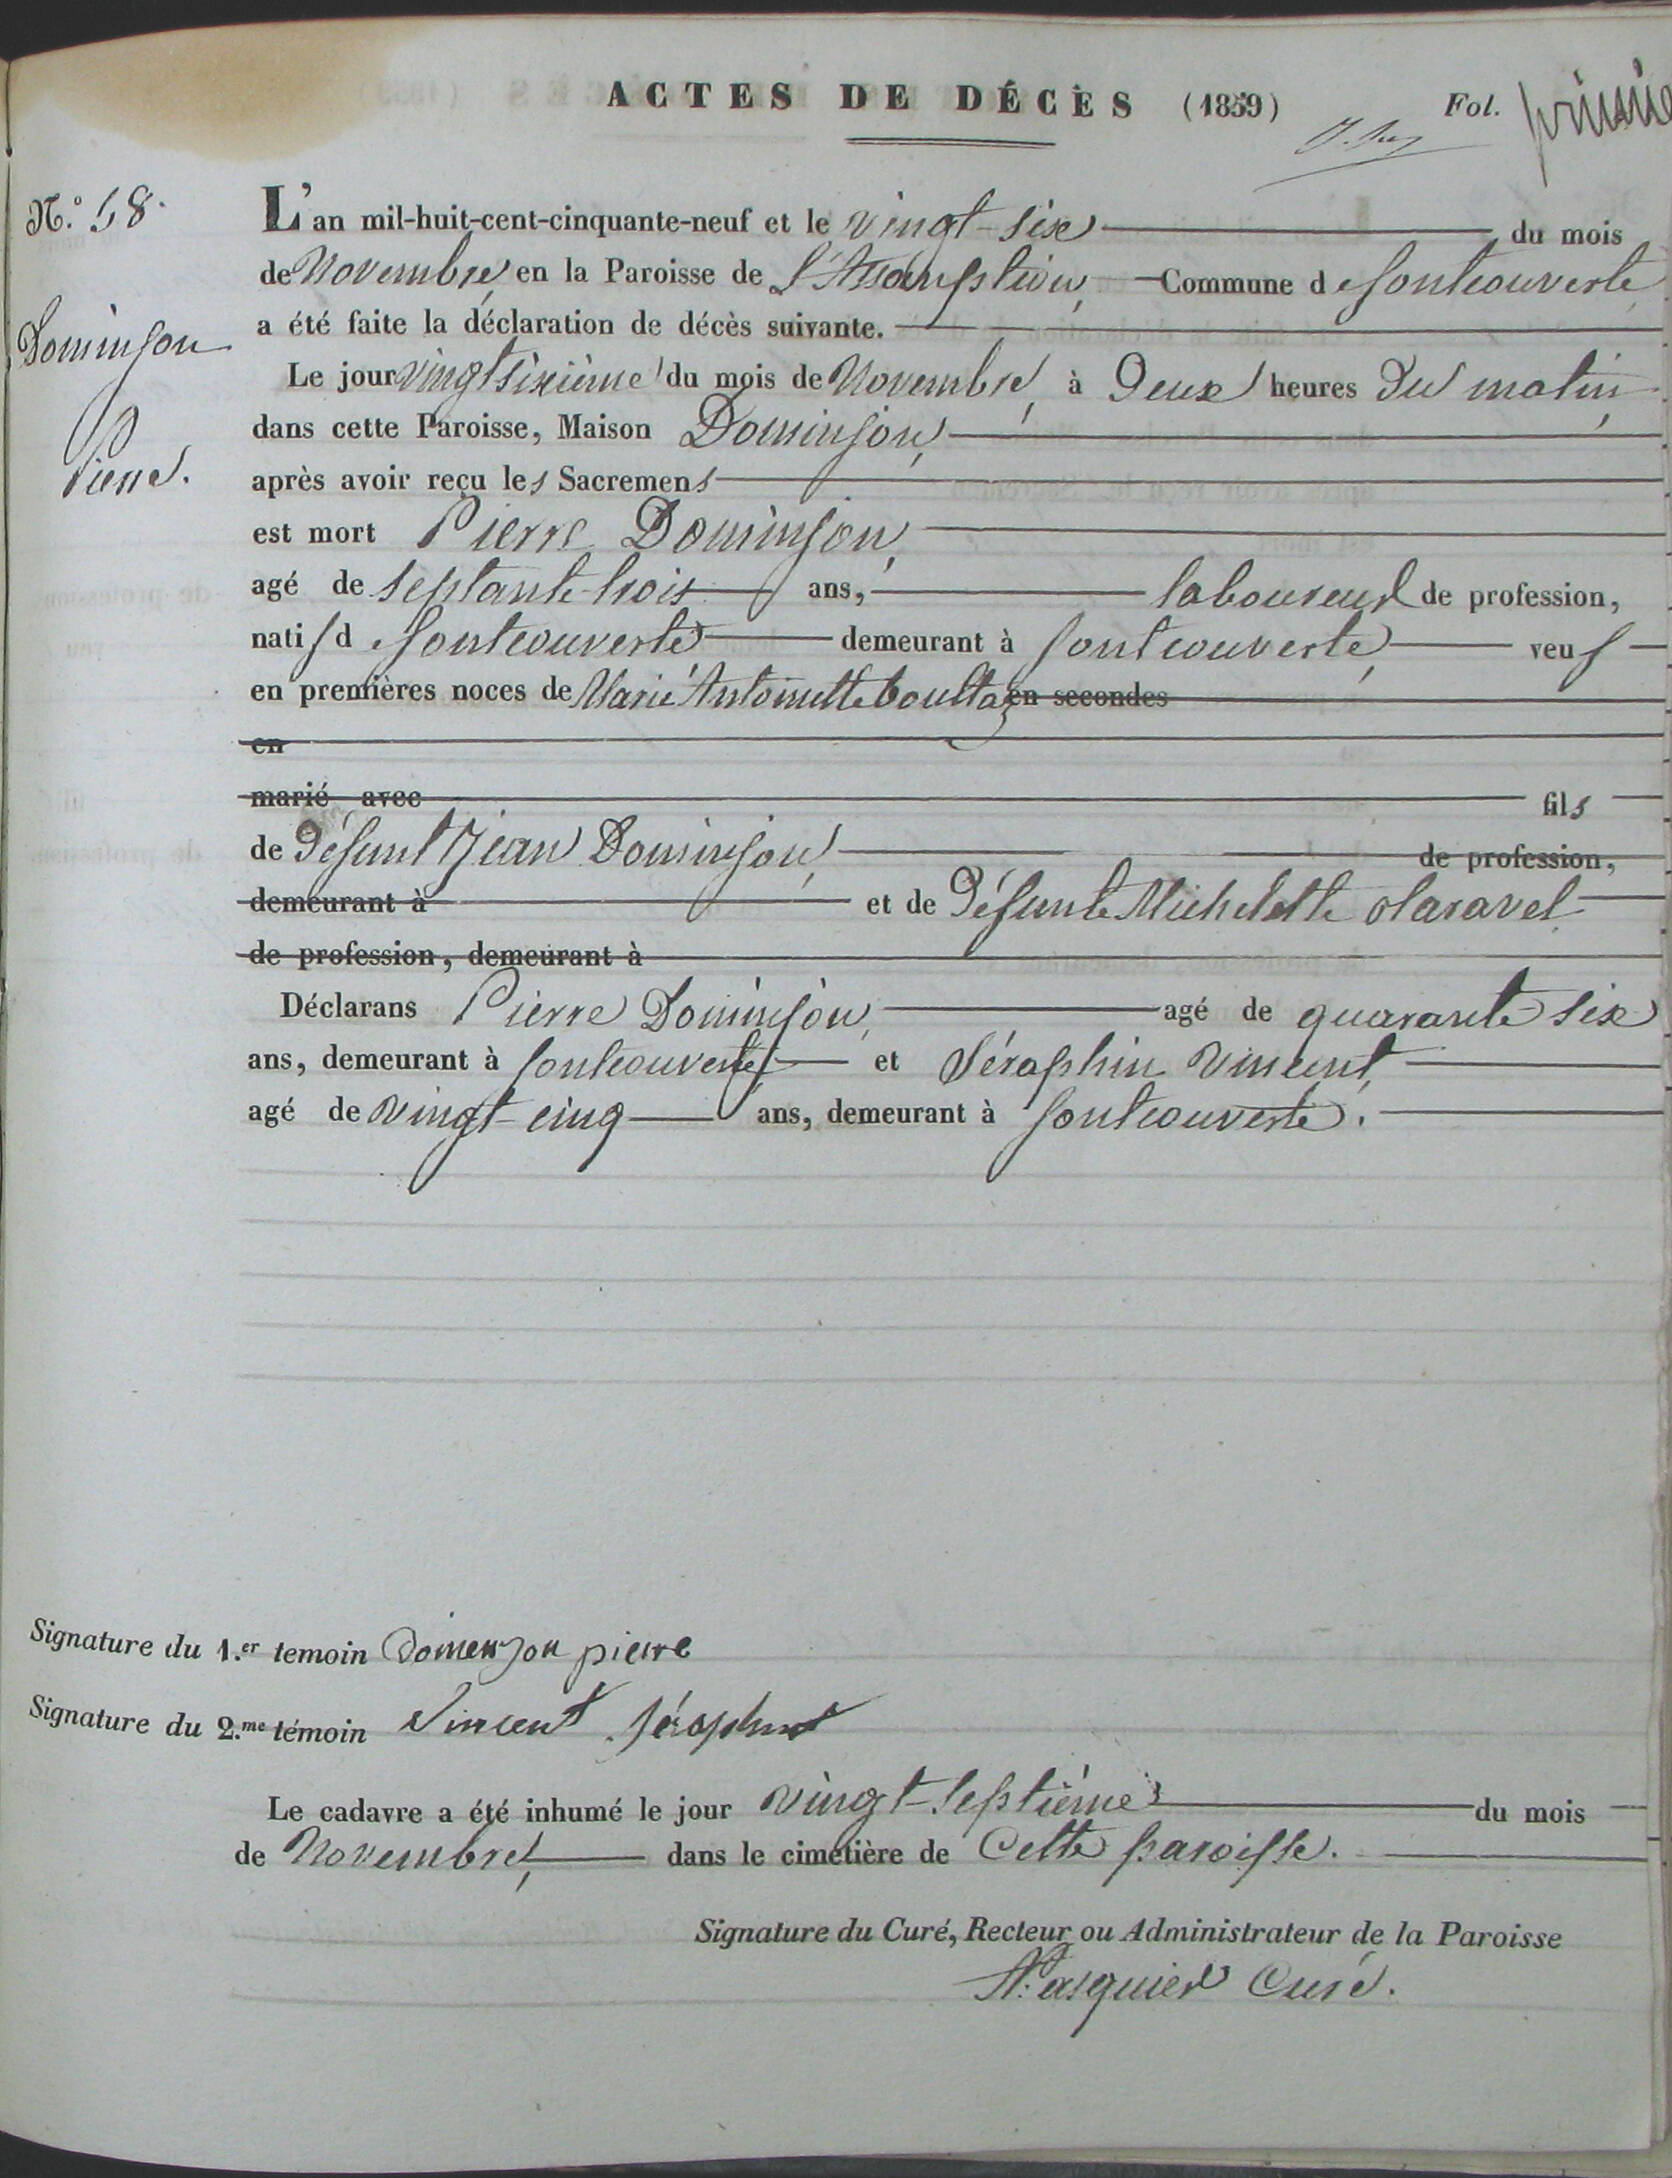 ACTES DE DÉCÈS (1859) Fol.
N.º 58.
L'an mil-huit-cent-cinquante-neuf et le vingt-six du mois
de Novembre, en la Paroisse de L'Assomption, Commune de Montcouverte
a été faite la déclaration de décès suivante.
Dominjon
Pierre.
Le jour vingt sixième du mois de Novembre, à Deux heures Du matin,
dans cette Paroisse, Maison Dominjon,
après avoir reçu les Sacremens
est mort Pierre Dominjon,
agé de septante-trois ans, laboureur de profession,
natif de Jontcouverte demeurant à Jontcouverte, veuf
en premières noces de Marie Antoinette boultaz en secondes
en
marié avec fils
de Défunt Jean Dominjon, de profession,
demeurant à et de Défunte Michelette Claravel
de profession, demeurant à
Déclarans Pierre Dominjon, agé de quarante six
ans, demeurant à Jontcouverte, et Séraphin Vincent,
agé de vingt-cinq ans, demeurant à Jontcouverte.
Signature du 1.er temoin Domenjon pierre
Signature du 2.me témoin Vincent Séraphin
Le cadavre a été inhumé le jour vingt-septième du mois
de Novembre, dans le cimetière de Cette paroisse.
Signature du Curé, Recteur ou Administrateur de la Paroisse
Pasquier Curé.